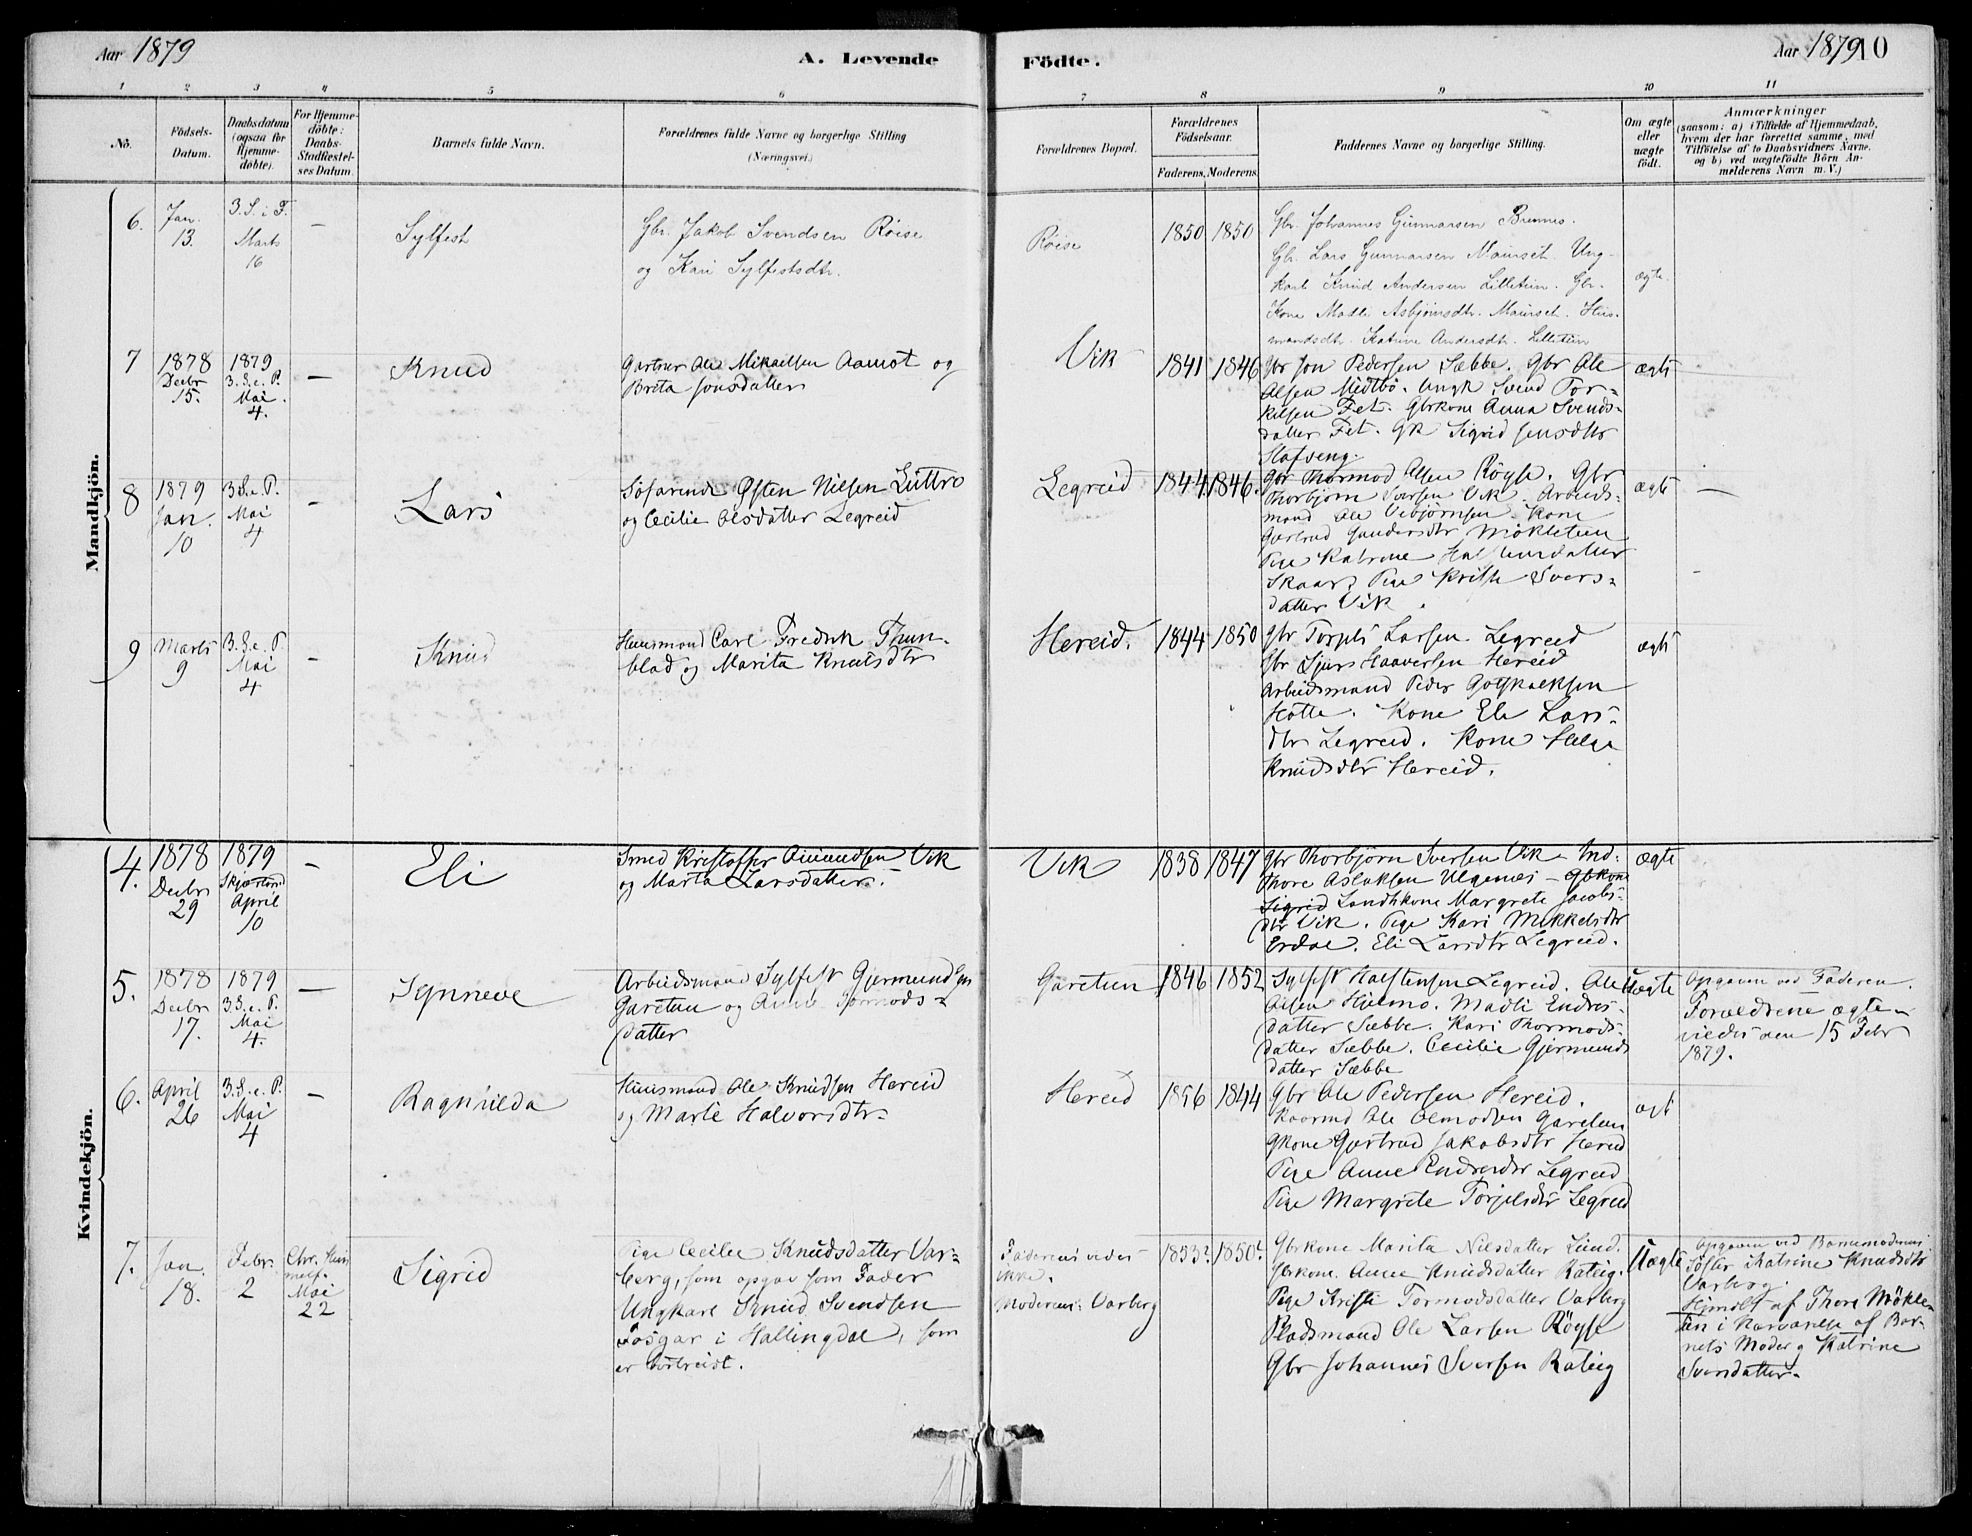 Aar 1879
A. Levende
Födte.
Aar 1879
10
1 2 3 4 5 6 7 8 9 10 11
No.
Födsels-Datum.
Daabsdatum (ogsaa for Hjemme-döbte).
For Hjemme-döbte: Daabs-Stadfæstel-ses Datum.
Barnets fulde Navn.
Forældrenes fulde Navne og borgerlige Stilling
(Næringsvei.)
Forældrenes Bopæl.
Forældrenes Födselsaar.
Faderens. Moderens.
Faddernes Navne og borgerlige Stilling.
Om ægte eller uægte födt.
Anmærkninger
(saasom: a) i Tilfælde af Hjemmedaab,
hvem der har forrettet samme, med
Tilföielse af to Daabsvidners Navne.
og b) ved uægtefödte Börn An-
melderens Navn m. V.)
Mandkjön.
6.
Jan. 13.
3. S. i F. Marts 16
–
Sylfest
Gbr. Jakob Svendsen Röise
og Kari Sylfestsdtr.
Röise
1850 1850
Gbr. Johannes Gunnarsen Brennes.
Gbr. Lars Gunnarsen Maurset. Ung-
karl Knud Andersen Lilletun. Gbr.
Kone Madli Asbjörnsdtr. Maurset. Hus-
mandsdtr. Katrine Andersdtr. Lilletun
ægte.
7
1878 Decbr 15.
1879 3. S. e. P. Mai 4.
–
Knud
Gartner Ole Mikaelsen Aamot og
Brita Jonsdatter
Vik
1841 1846
Gbr Jon Pedersen Sæbbe. Gbr Ole
Olsen Midtbö. Ungk Svend Tor-
kilsen Fet. Gbrkone Anna Svends-
datter Fet. Gk Sigrid Jensdtr
Hafseng.
ægte
–
8
1879 Jan. 10
3 S. e. P. Mai 4
–
Lars
Söfarende Östen Nilsen Luttro
og Cecilie Olsdatter Legreid
Legreid
1844 1846.
Gbr Thormod Olsen Röyse. Gbr
Thorbjörn Sversen Vik. Arbeids-
mand Ole Vebjörnsen. Kone
Gjertrud Gundersdtr Mökletun
Pige Katrine
Skaar. Pige Kristi Svers-
datter Vik.
ægte
–
9
Marts 9
3. S. e. P. Mai 4
–
Knud
Huusmand Carl Fredrik Thun-
blad og Marita Knutsdtr
Hereid.
1844 1850
Gbr Torgils Larsen Legreid
Gbr Sjurs Haaversen Hereid
Arbeidsmand Peder Gotskalksen
Hotte. Kone Eli Lars-
dtr Legreid. Kone Helga
Knudsdtr Hereid.
ægte
Kvindekjön.
4.
1878 Decbr 29
1879 Skjærtorsd April 10
–
Eli
Smed Kristoffer Amundsen Vik
og Marta Larsdatter.
Vik
1838 1847
Gbr Thorbjörn Sversen Vik – Ind.
Thore Aslaksen Ulgenes – Gbkone
Sigrid Landhkone Margrete Jacobs-
dtr Vik. Pige Kari Mikkelsdtr
Erdal. Eli Larsdtr Legreid.
ægte
5.
1878 Decbr 17.
1879 3. S. e. P. Mai 4.
–
Synneve
Arbeidsmand Sylfest Gjermundsen
Garetun og Anna Tormods-
datter
Garetun
1846 1852
Sylfest Halstensen Legreid. Ole
Olsen Hjelmo. Madli Endres-
datter Sæbbe. Kari Thormods-
datter Sæbbe. Cecilie Gjermunds
datter Sæbbe
Uægte
Opgaven ved Faderen.
Forældrene ægte-
viedes den 15 Febr
1879.
6.
April 26
3. S. e. P. Mai 4
–
Ragnhilda
Huusmand Ole Knudsen Hereid
og Marte Halvorsdtr
Hereid
1856 1844
Gbr Ole Pedersen Hereid.
Kaarmd Ole Olmodsen Garetun
Gkone Gjertrud Jakobsdtr Hereid
Pige Anne Endresdtr Legreid
Pige Margrete Torjelsdtr Legreid
ægt
7.
Jan. 18.
Febr. 2
Chr. Him melf. Mai 22
Sigrid
Pige Cecilie Knudsdatter Var-
berg, som opgav som Fader
Ungkarl Knud Svendsen
Fosgar i Hallingdal, som
er bortreist.
Faderens vides
ikke.
Moderens: Varberg
1853? 1850?
Gbrkone Marita Nilsdatter Lund.
Gbrkone Anne Knudsdatter Rateig.
Pige Kristi Tormodsdatter Varberg
Pladsmand Ole Larsen Röyse
Gbr Johannes Sversen Rateig
Uægte
Opgaven ved Barnemoderens
Söster Katrine Knudsdtr
Varberg.
Hjmdbt af Thore Mökle-
tun i Nærværelse af Bar-
nets Moder og Katrine
Sversdatter.